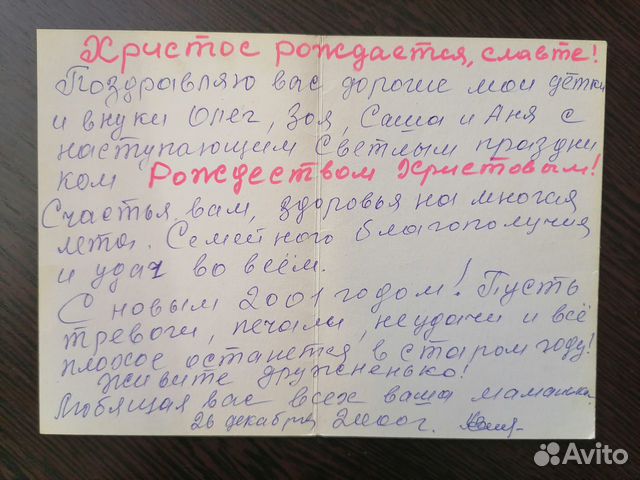 Христос рождается, славте!
Поздравляю вас дорогие мои детки
и внуки Олег, Зоя, Саша и Аня с
наступающим Светлым праздни
ком Рождеством Христовым!
Счастья вам, здоровья на многая
лета. Семейного благополучия
и удач во всём.
С новым 2001 годом! Пусть
тревоги, печали, неудачи и всё
плохое останется в старом году!
Живите дружненько!
Любящая вас всех ваша мамашка.
26 декабря 2000г.
Avito